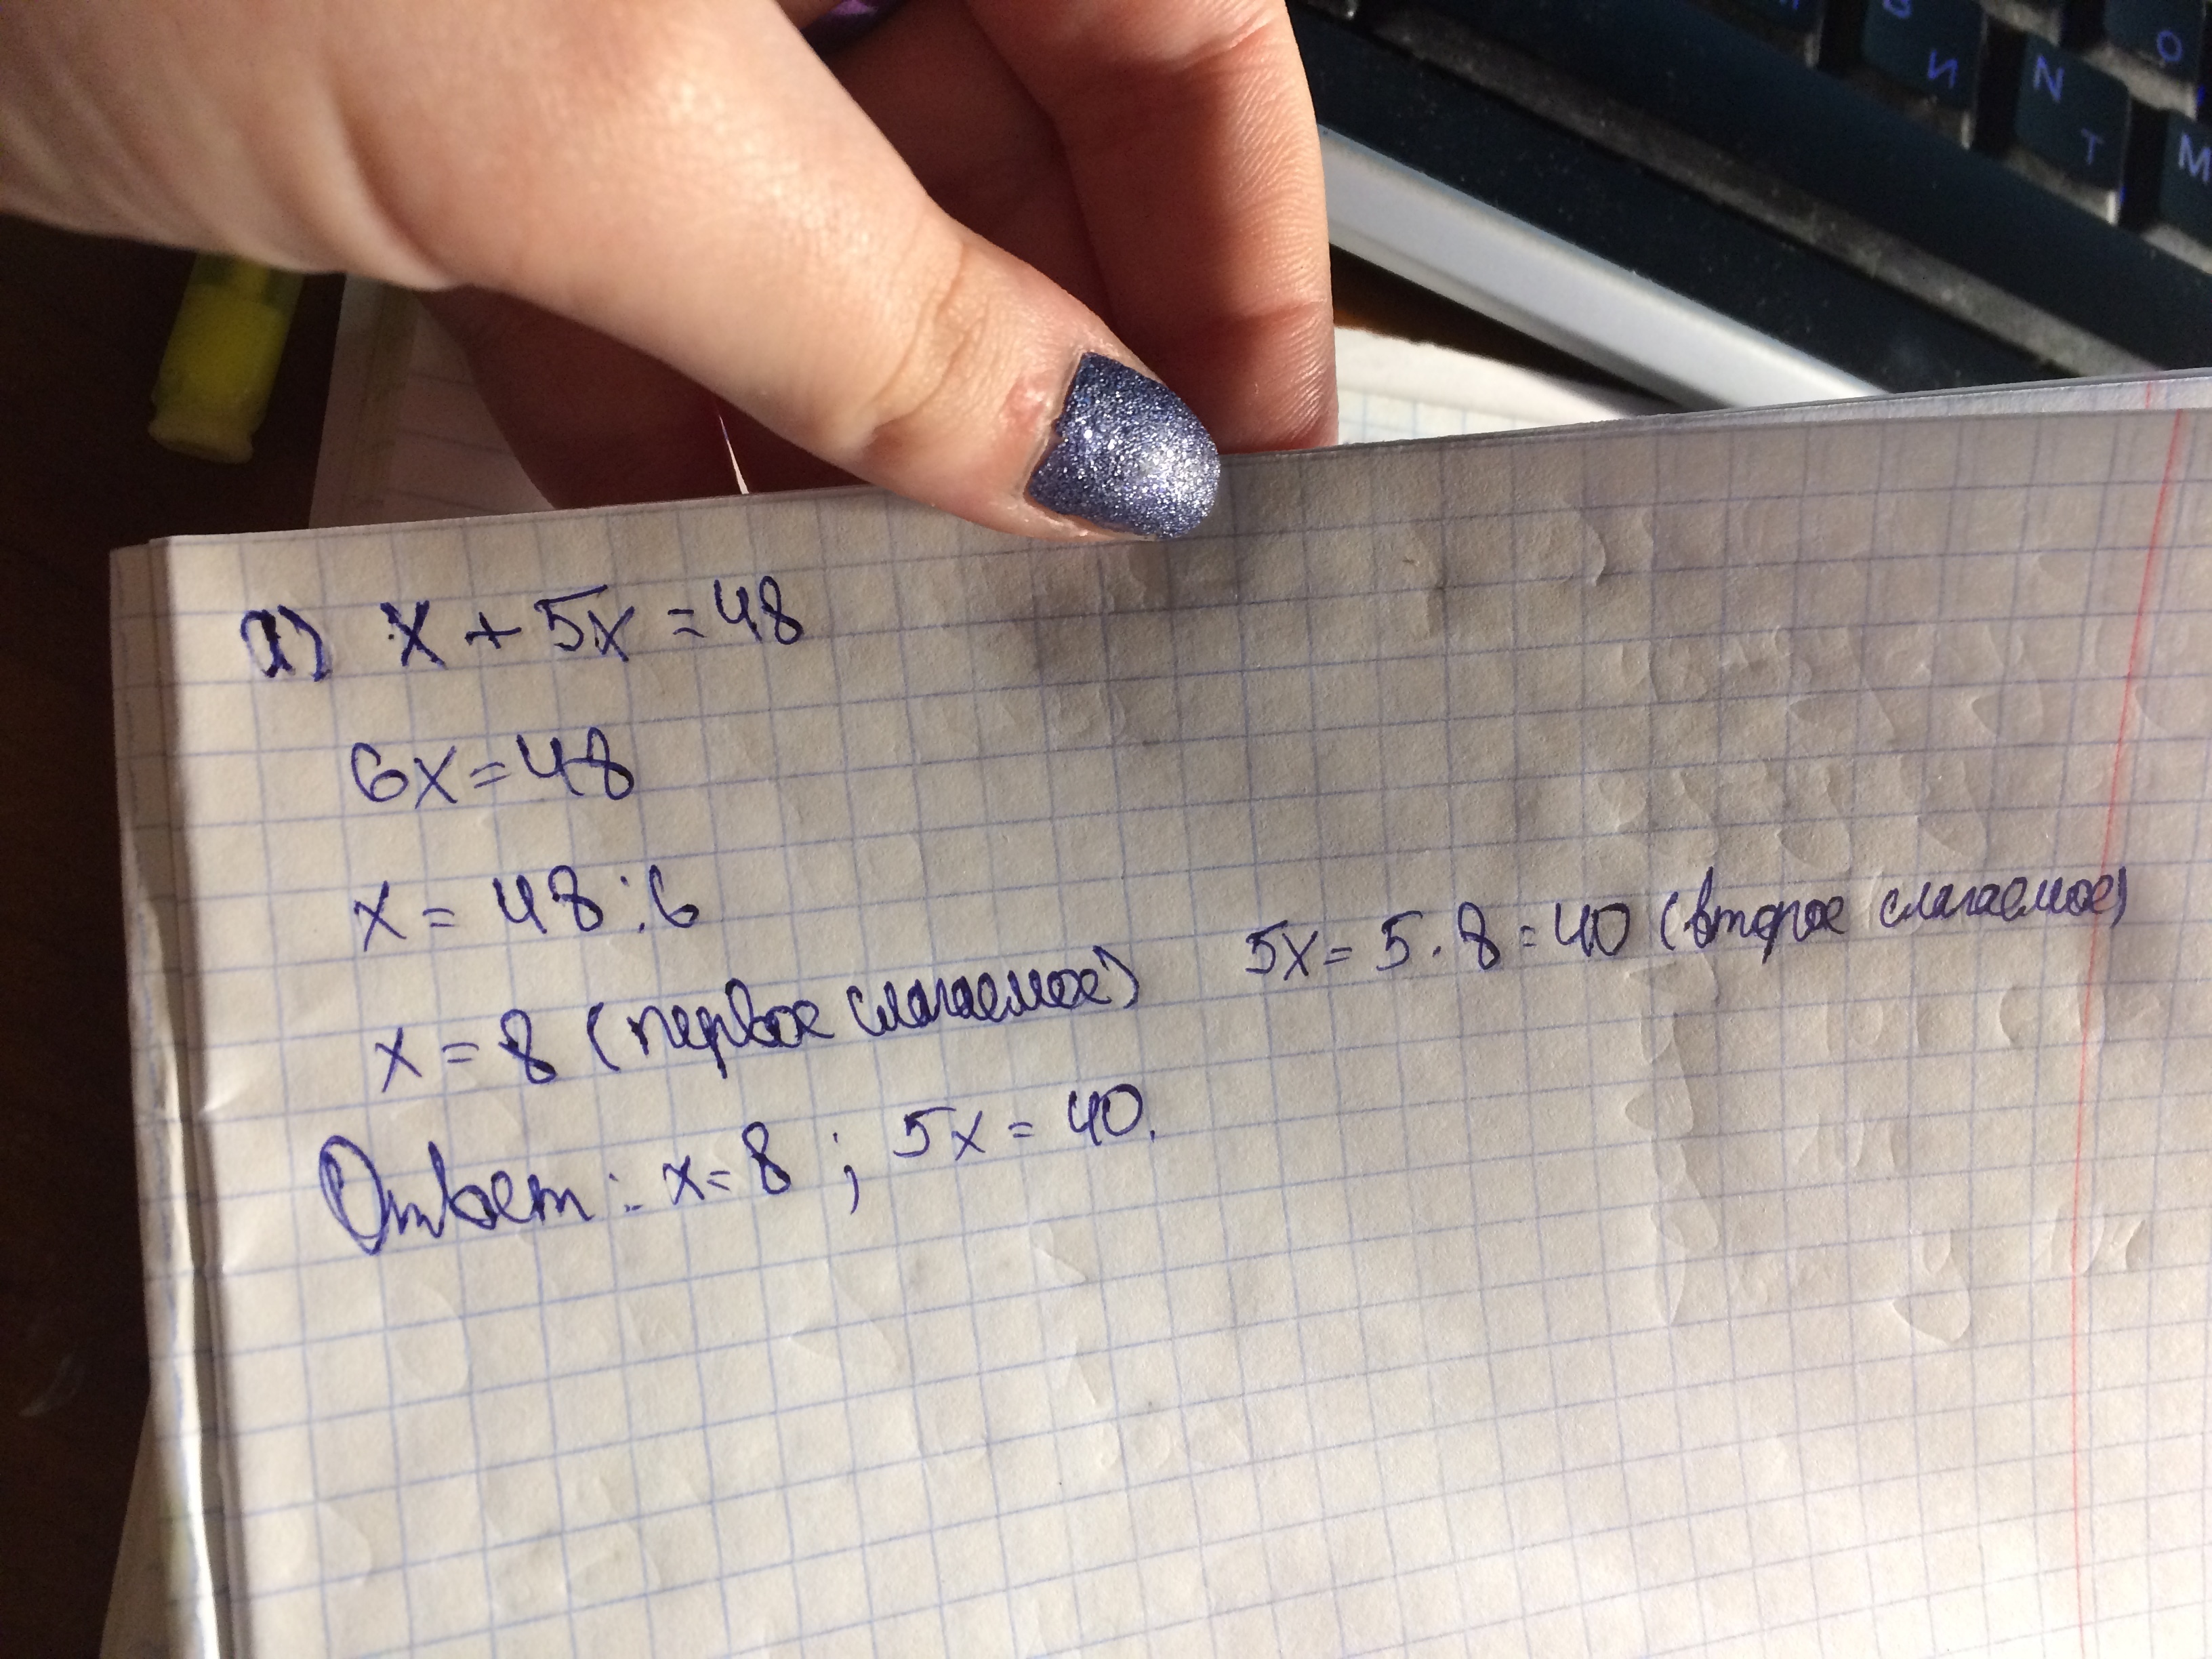 а) x + 5x = 48
6x = 48
x = 48 : 6
x = 8 (первое слагаемое) 5x = 5 · 8 = 40 (второе слагаемое)
Ответ: x = 8 ; 5x = 40.
В
И
N
Т
О
М